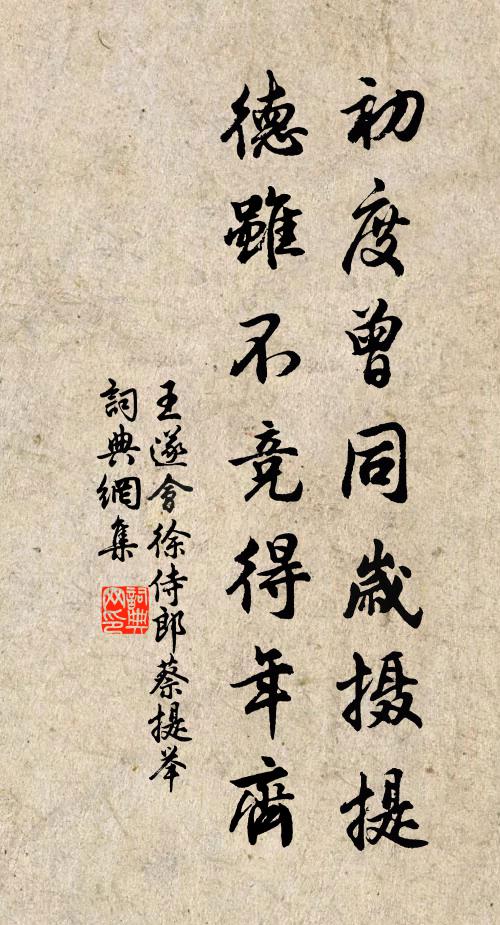 初度曾同歲摄提
德雖不竞得年齊
王遂會徐侍郎蔡提举
詞典網集
詞典网印